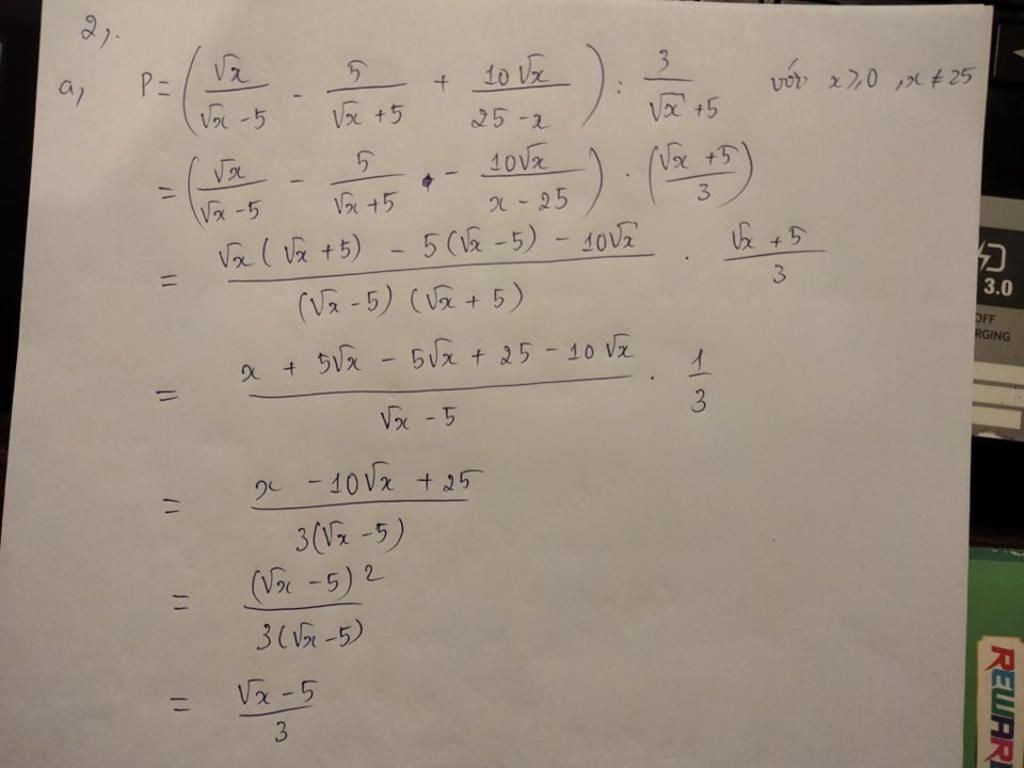 2,.
a, P = (√x / (√x - 5) - 5 / (√x + 5) + 10√x / (25 - x)) : 3 / (√x + 5) với x ⩾ 0, x ≠ 25
= (√x / (√x - 5) - 5 / (√x + 5) - 10√x / (x - 25)) . ((√x + 5) / 3)
= (√x(√x + 5) - 5(√x - 5) - 10√x) / ((√x - 5)(√x + 5)) . (√x + 5) / 3
= (x + 5√x - 5√x + 25 - 10√x) / (√x - 5) . 1 / 3
= (x - 10√x + 25) / (3(√x - 5))
= (√x - 5)² / (3(√x - 5))
= (√x - 5) / 3
3.0
OFF
RGING
REWAR